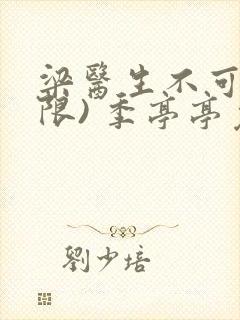 梁醫生不可
限)季亭亭
劉少培